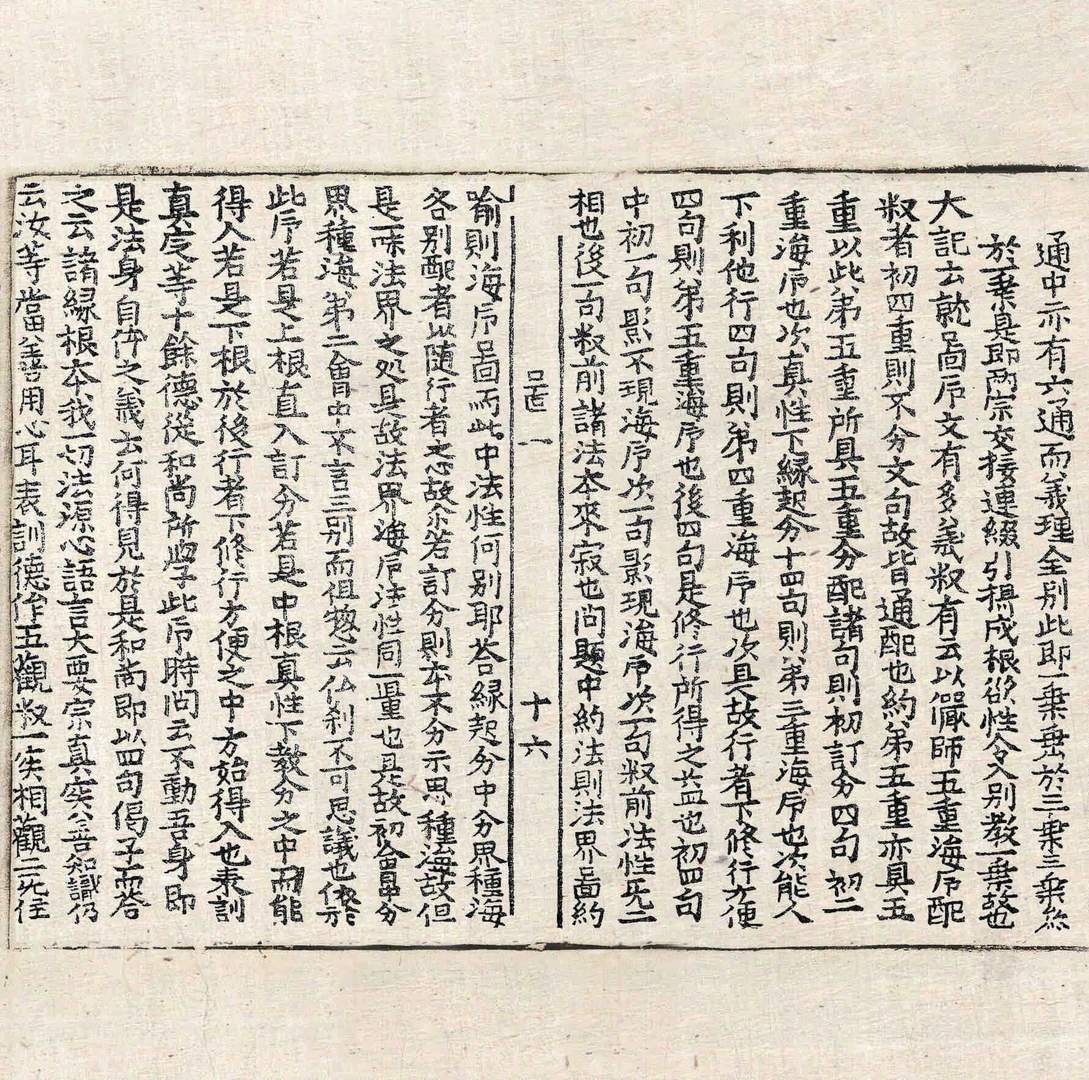 通中亦有六通而義理全別此即一乗垂於三乗三乗㳂
於一乗是即兩宗交接連綴引攝成根欲性令入別教一乗故也
大記云就啚卬文有多義釈有云以儼師五重海卬配
釈者初四重則不分文句故皆通配也約第五重亦具五
重以此第五重所具五重分配諸句則初訂分四句初二
重海卬也次真性下縁起分十四句則第三重海卬也次能人
下利他行四句則第四重海卬也次是故行者下修行方便
四句則第五重海卬也後四句是修行所得之益也初四句
中初一句影不現海卬次一句影現海卬次一句釈前法性旡二
相也後一句釈前諸法本來寂也問題中約法則法界啚約
十六
喻則海卬啚而此中法性何别耶答縁起分中分界種海
各别配者以随行者之心故尒若訂分則本不分示思種海故但
是一味法界之処是故法界海卬法性同一重也是故初會中分
界種海第二會中文不言三别而徂惣云仏刹不可思議也依於
此卬若是上根直入訂分若是中根真性下教分之中而能
得入若是下根於後行者下修行方便之中方始得入也表訓
真㝎等十餘德從和尚所學此卬時問云不動吾身即
是法身自体之義云何得見於是和尚即以四句偈子而答
之云諸縁根本我一切法源心語言大要宗真实善知識仍
云汝等當善用心耳表訓德作五觀釈一实相觀二旡住